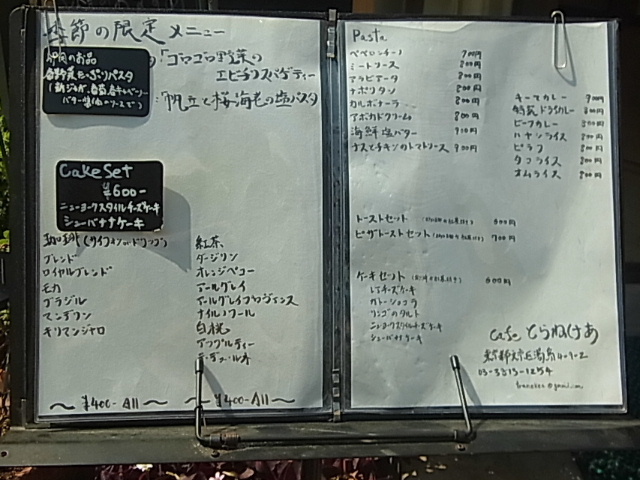 季節の限定メニュー
「ゴロゴロ野菜の
エビチリスパゲティー
帆立と桜海老の塩パスタ
Cake Set
¥600-
ニューヨークスタイルチーズケーキ
シューバナナケーキ
珈琲
ブレンド
ロイヤルブレンド
モカ
ブラジル
マンデリン
キリマンジャロ
〜 ¥400- All 〜
紅茶
ダージリン
オレンジペコー
アールグレイ
アールグレイプロヴァンス
ナイルソワール
白桃
アップルティー
〜 ¥400- All 〜
Pasta
ペペロンチーノ 700円
ミートソース 800円
アラビアータ 800円
ナポリタン 800円
カルボナーラ 800円
アボカドクリーム 800円
海鮮塩バター 900円
ナスとチキンのトマトソース 900円
キーマカレー 900円
特製ドライカレー 800円
ビーフカレー 800円
ハヤシライス 800円
ピラフ 800円
タコライス 800円
オムライス 800円
トーストセット 500円
ピザトーストセット 700円
ケーキセット 600円
レアチーズケーキ
ガトーショコラ
リンゴのタルト
ニューヨークスタイルチーズケーキ
シューバナナケーキ
Cafe とらねけあ
03-3813-1254